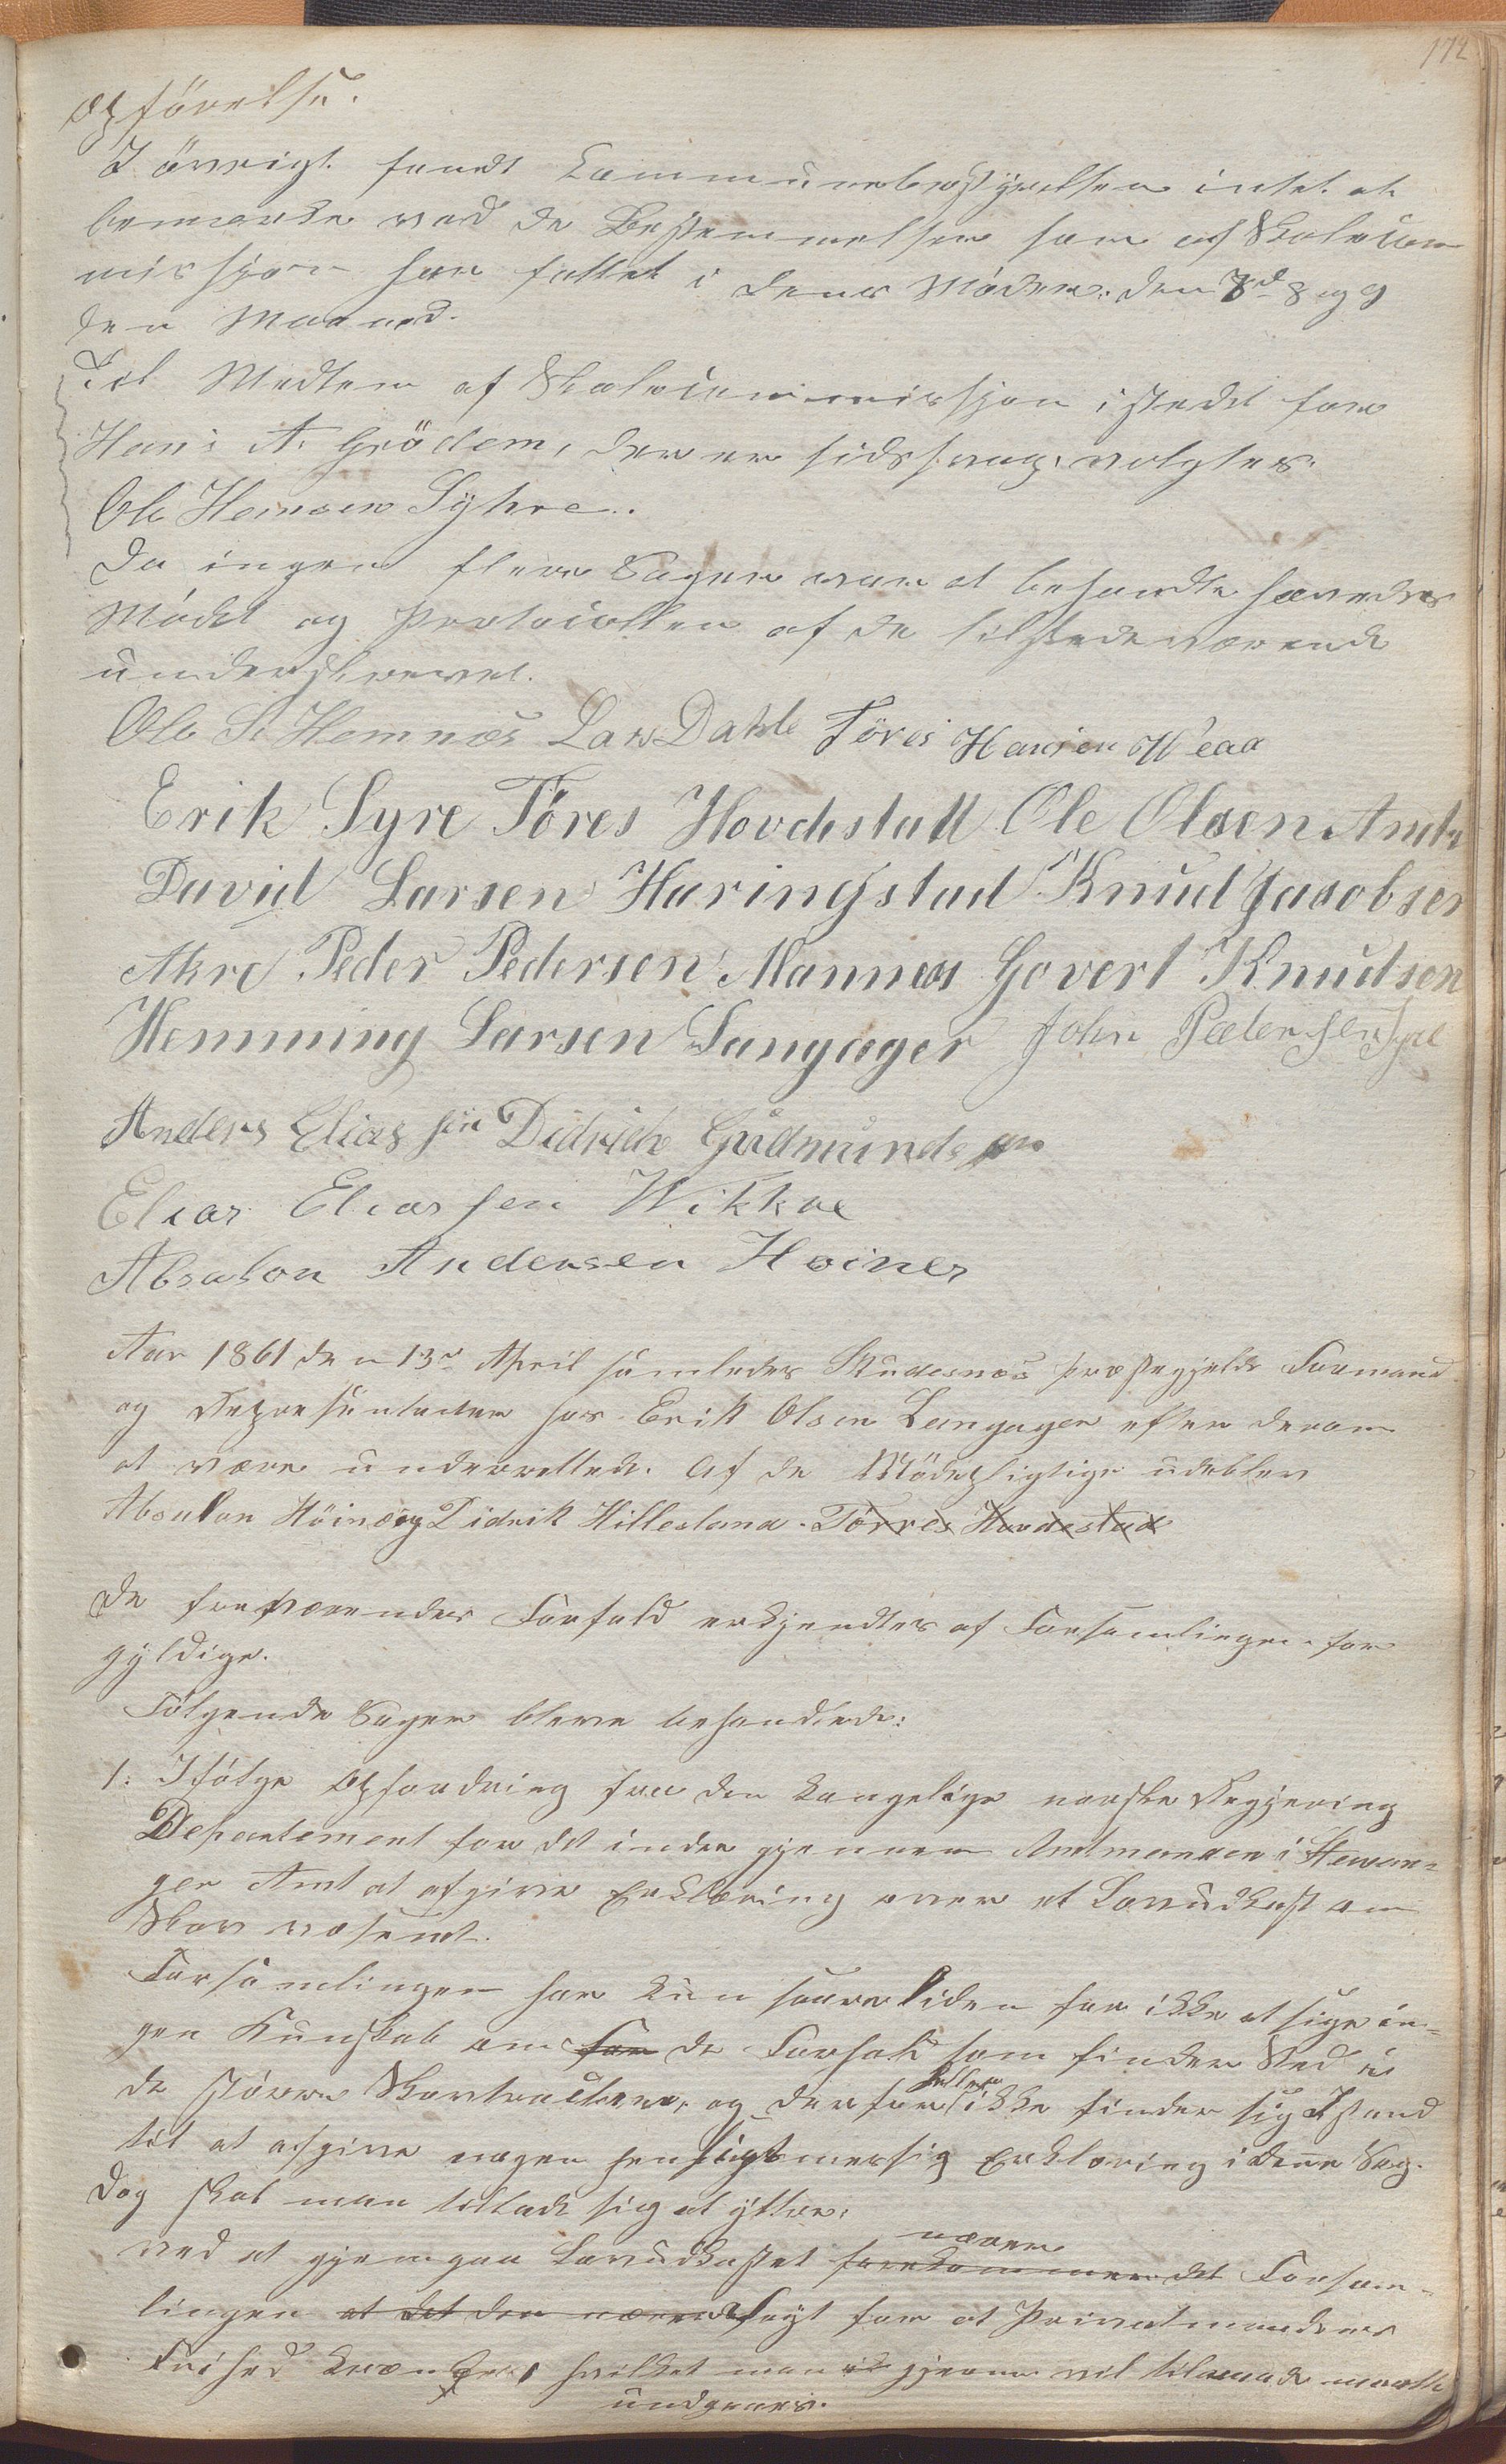 172
opførelse.
I øvrigt fandt Kommunebestyrelsen intet at
bemærke ved de Bestemmelser som af Skolecom
missjon har fattet i dens Møder den 7d 8 og 9
den Maaned.
Til Medlem af Skolecommissjon istedet for
Hans A. Grödem, der er sidssvag, valgtes.
Ole Hemsen Syhre.
Da ingen flere Sager var at behandle hævedes
Mödet og Protocollen af de tilstedeværende
underskrevet.
Ole S. Hemnæs Lars Dahle Töres Hansen
Erik Syre Töres Hovdestad Ole Olsen
David Larsen Haringstad Knud Jacobsen
Akre Peder Pedersen Mannes Govert Knudsen
Hemming Larsen Langager John Peedersen Syre
Anders Eliassen Didrich Gudmundsen
Elias Eliassen Wikkre
Absalon Andersen Höines
Aar 1861 den 13d April samledes Skudesnæs Præstegjelds Formænd
og Repræsentanter hos Erik Olsen Langager efter derom
at være underrettede. Af de Mödepligtige udeblev
Absalon Höines og Didrik Hillesland. Törres Hovdestad
De fraværendes Forfald erkjendtes af Forsamlingen for
gyldige.
Fölgende Sager bleve behandlede:
1. Ifölge Opfordring fra den kongelige norske Regjering
Departement for det indre gjennem Amtmanden i Stavan=
ger Amt at afgive Erklæring over et Lovudkast om
Skovvæsenet.
Forsamlingen har kun saare liden for ikke at sige in=
gen Kunskab om for de Forhold som finder Sted i
de större Skovtracter, og derfor heller ikke finder sig Istand
til at afgive nogen hensigtmessig Erklæring i denne Sag.
Dog skal man tillade sig at yttre:
ved at gjennemgaa Lovudkastet forekommer nærer det Forsam=
lingen at det den nærer frygt for at Privatmandens
Frihed krænkes, hvilket man gjerne vil tilraade maatte
undgaaes.